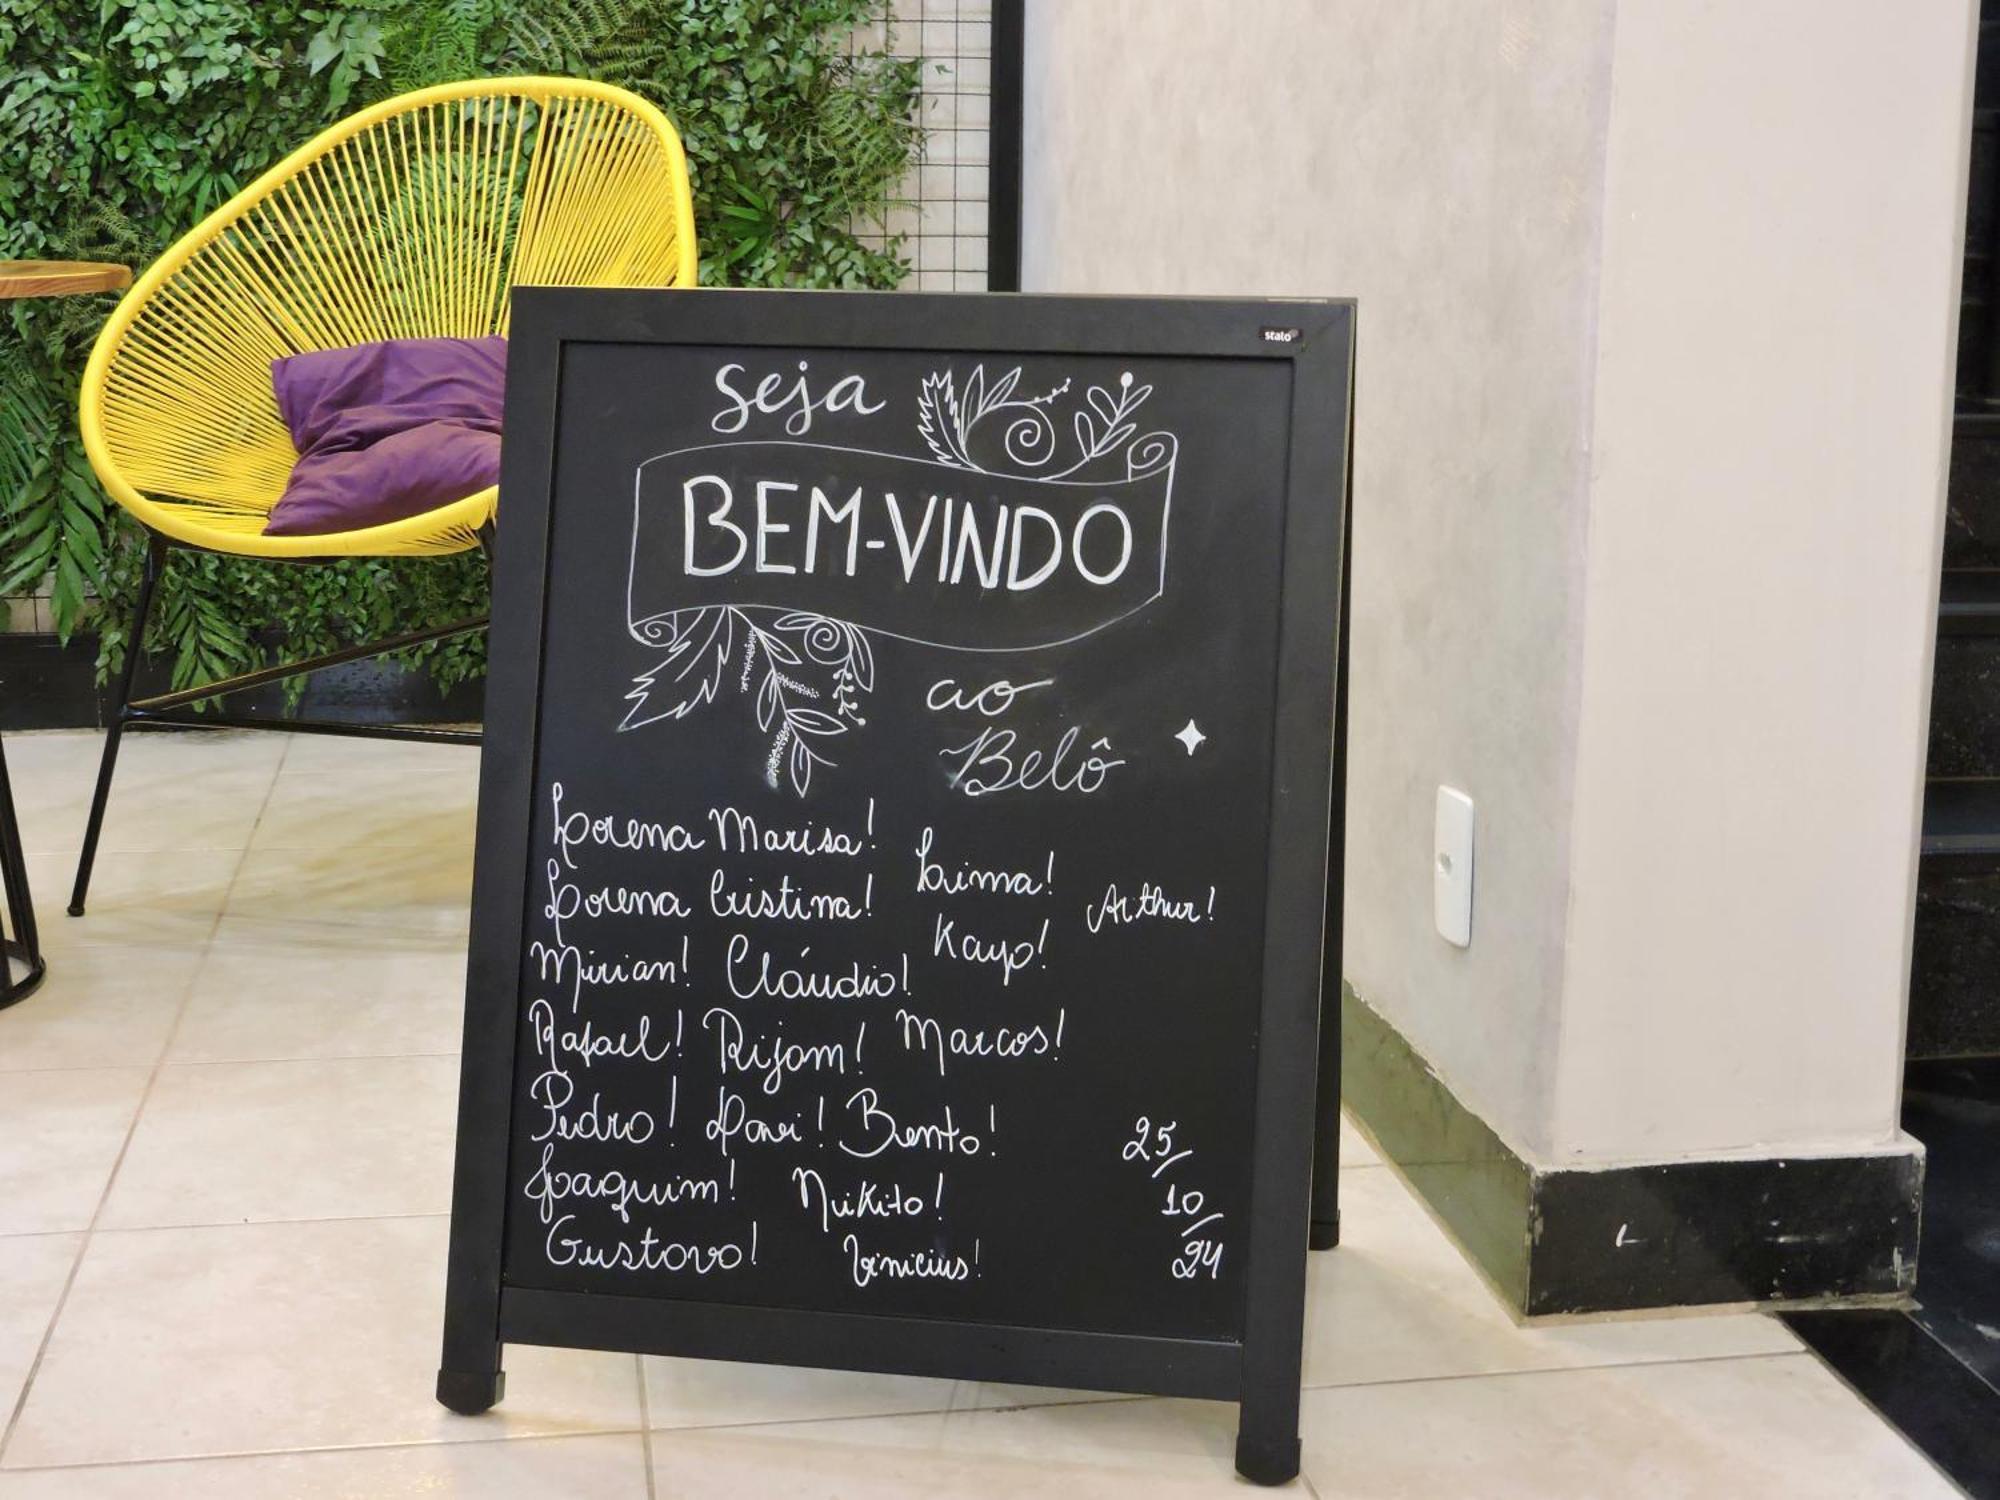 stalo
seja
BEM-VINDO
ao
Belô
Lorena Marisa!
Lima!
Lorena Cristina!
Arthur!
Kayo!
Mirian! Cláudio!
Rafael! Rijam! Marcos!
Pedro! Davi! Bento!
Joaquim! Nikito!
Gustavo! Vinicius!
25/
10/
24